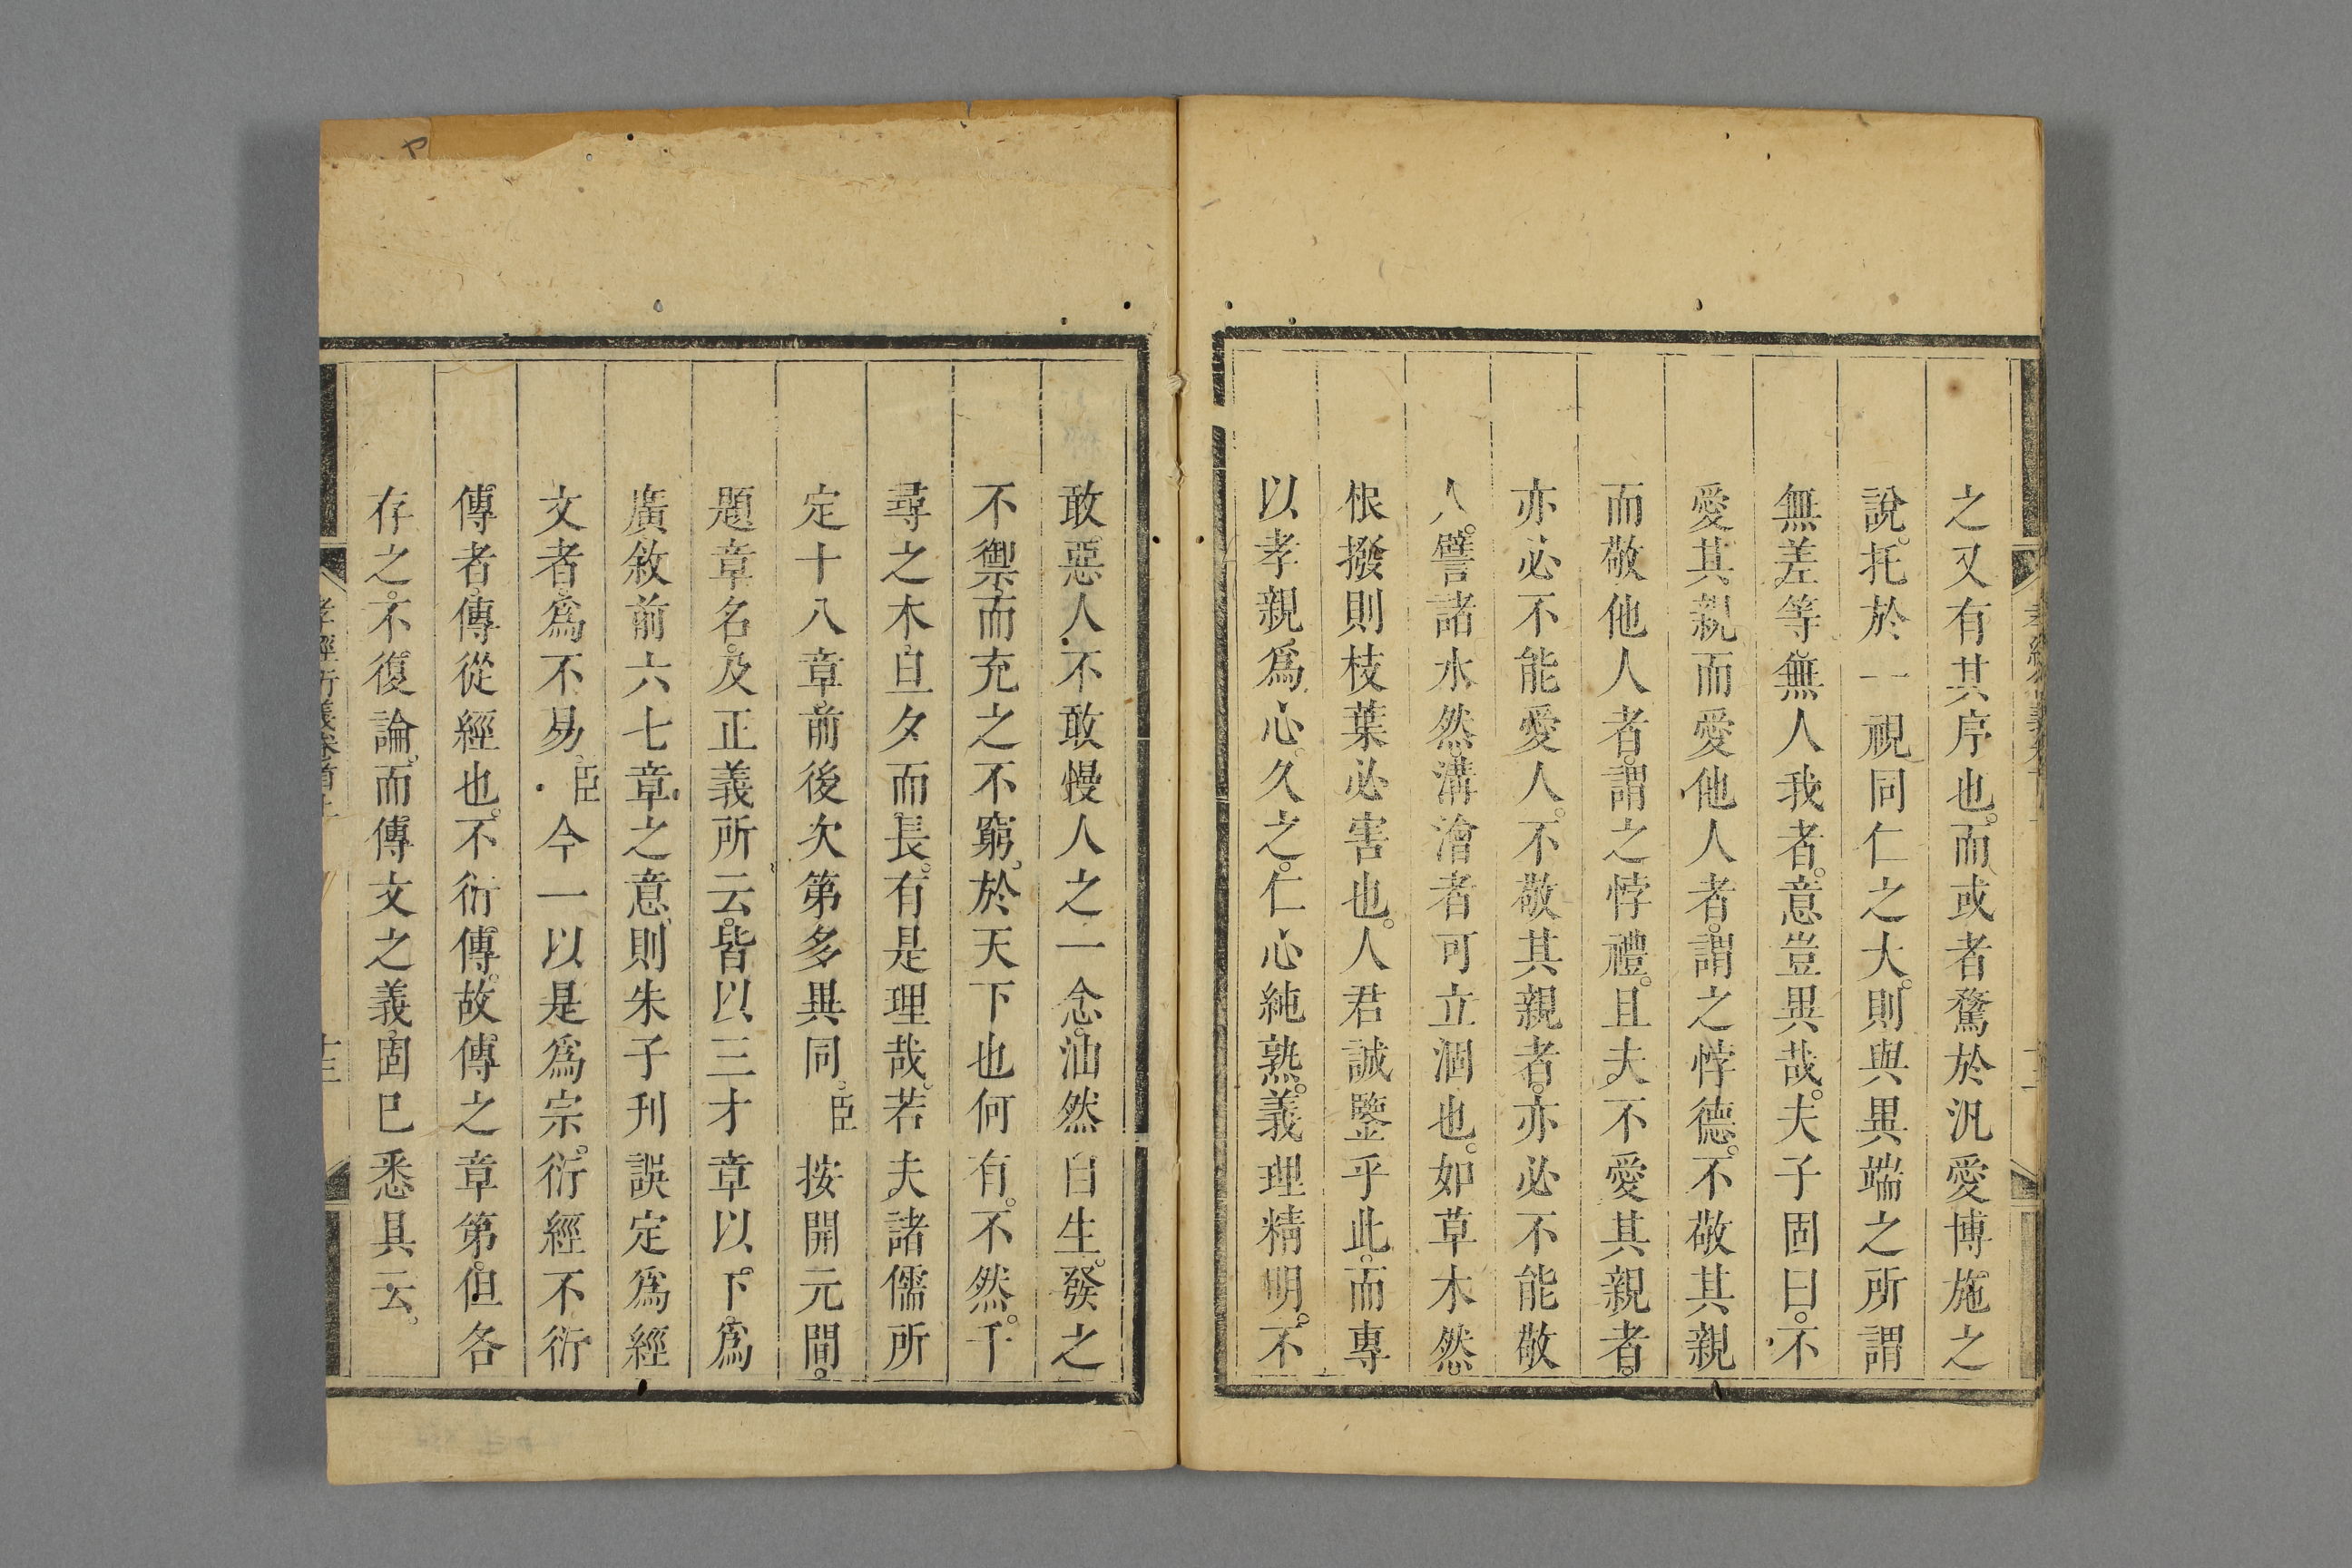 之又有其序也。而或者騖於汎愛博施之
說。托於一視同仁之大。則與異端之所謂
無差等。無人我者。意豈異哉。夫子固曰。不
愛其親而愛他人者。謂之悖德。不敬其親
而敬他人者。謂之悖禮。且夫不愛其親者。
亦必不能愛人。不敬其親者。亦必不能敬
人。譬諸水然。溝澮者可立涸也。如草木然。
根撥則枝葉必害也。人君誠鑒乎此。而專
以孝親爲心。久之。仁心純熟。義理精明。不
敢惡人不敢慢人之一念。油然自生。發之
不禦。而充之不窮。於天下也何有。不然。千
尋之木。旦夕而長。有是理哉。若夫諸儒所
定十八章。前後次第多異同。臣按開元間。
題章名。及正義所云。皆以三才章以下。爲
廣敘前六七章之意。則朱子刋誤定爲經
文者。爲不易。臣今一以是爲宗。衍經不衍
傳者。傳從經也。不衍傳。故傳之章第。但各
存之。不復論。而傳文之義。固巳悉具云。
孝經衍義卷首上
十三